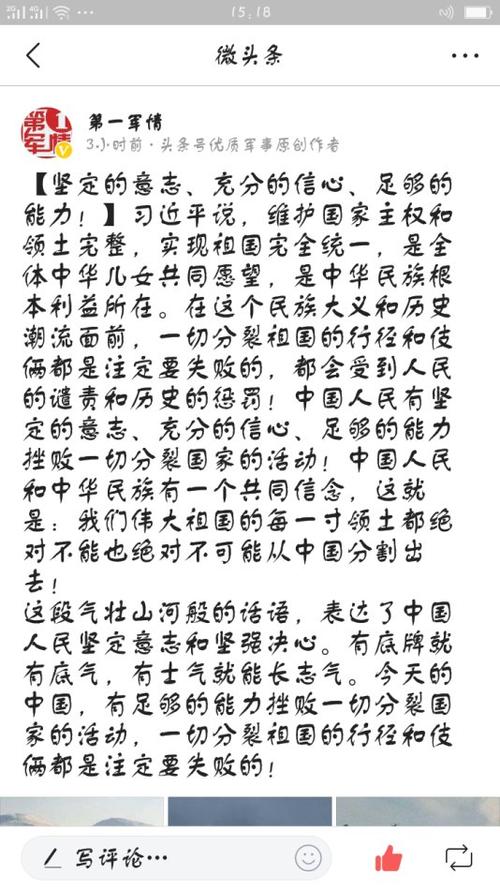 2G 4G 15:18
微头条
第一军情
第一军情
3小时前·头条号优质军事原创作者
【坚定的意志、充分的信心、足够的
能力！】习近平说，维护国家主权和
领土完整，实现祖国完全统一，是全
体中华儿女共同愿望，是中华民族根
本利益所在。在这个民族大义和历史
潮流面前，一切分裂祖国的行径和伎
俩都是注定要失败的，都会受到人民
的谴责和历史的惩罚！中国人民有坚
定的意志、充分的信心、足够的能力
挫败一切分裂国家的活动！中国人民
和中华民族有一个共同信念，这就
是：我们伟大祖国的每一寸领土都绝
对不能也绝对不可能从中国分割出
去！
这段气壮山河般的话语，表达了中国
人民坚定意志和坚强决心。有底牌就
有底气，有士气就能长志气。今天的
中国，有足够的能力挫败一切分裂国
家的活动，一切分裂祖国的行径和伎
俩都是注定要失败的！
写评论…